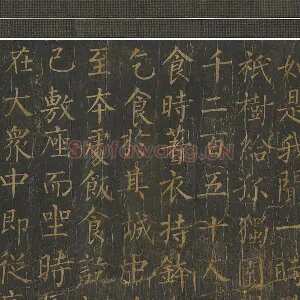 如是我聞一時
祇樹給孤獨園
千二百五十人
食時著衣持鉢
乞食於其城中
至本處飯食訖
已敷座而坐時
在大衆中即從
Shufawang.cn